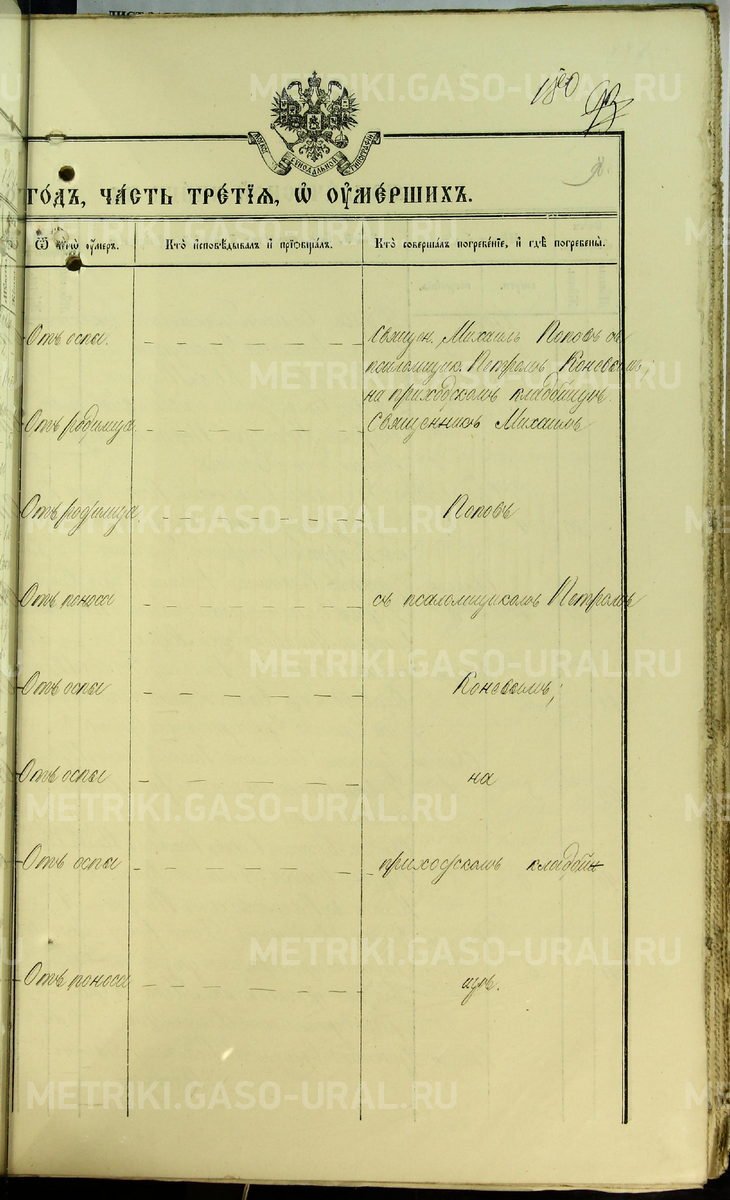 180
ПЕЧАТ. СѴНОДАЛЬНОЙ ТИПОГРАФІИ
ГО́ДЪ, ЧА́СТЬ ТРЕ́ТІЯ, Ѡ҆ ОУ҆МЕ́РШИХЪ.
Ѿ чегѡ̀ оу҆́меръ.
Кто̀ и҆сповѣ́дывалъ и҆ прїѡбща́лъ.
Кто̀ соверша́лъ погребе́нїе, и҆ гдѣ̀ погребены̀.
Отъ оспы. Священ. Михаилъ Поповъ съ
псаломщик. Петромъ Коневымъ;
на приходскомъ кладбищѣ.
Отъ родимца Священникъ Михаилъ
Отъ родимца Поповъ
Отъ поноса съ псаломщикомъ Петромъ
Отъ оспы Коневымъ;
Отъ оспы на
Отъ оспы приходскомъ кладби
Отъ поноса щѣ.
METRIKI.GASO-URAL.RU